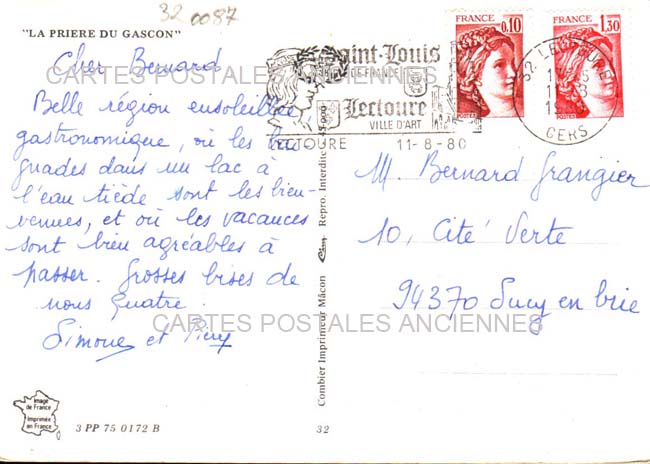 32 0087
"LA PRIERE DU GASCON"
Cher Bernard
Belle région ensoleillée
gastronomique, où les bai
gnades dans un lac à
l'eau tiède sont les bien-
venues, et où les vacances
sont bien agréables à
passer. Grosses bises de
nous quatre.
Simone et
Image
de France
Imprimée
en France
3 PP 75 0172 B
32
Combier Imprimeur Mâcon Repro. Interdite
Saint-Louis
DE FRANCE
Lectoure
VILLE D'ART
LECTOURE 11-8-80
FRANCE
0,10
POSTES
FRANCE
1,30
POSTES
32 LECTOURE
GERS
M. Bernard Grangier
10, Cité Verte
94370 Sucy en brie
CARTES POSTALES ANCIENNES
CARTES POSTALES ANCIENNES